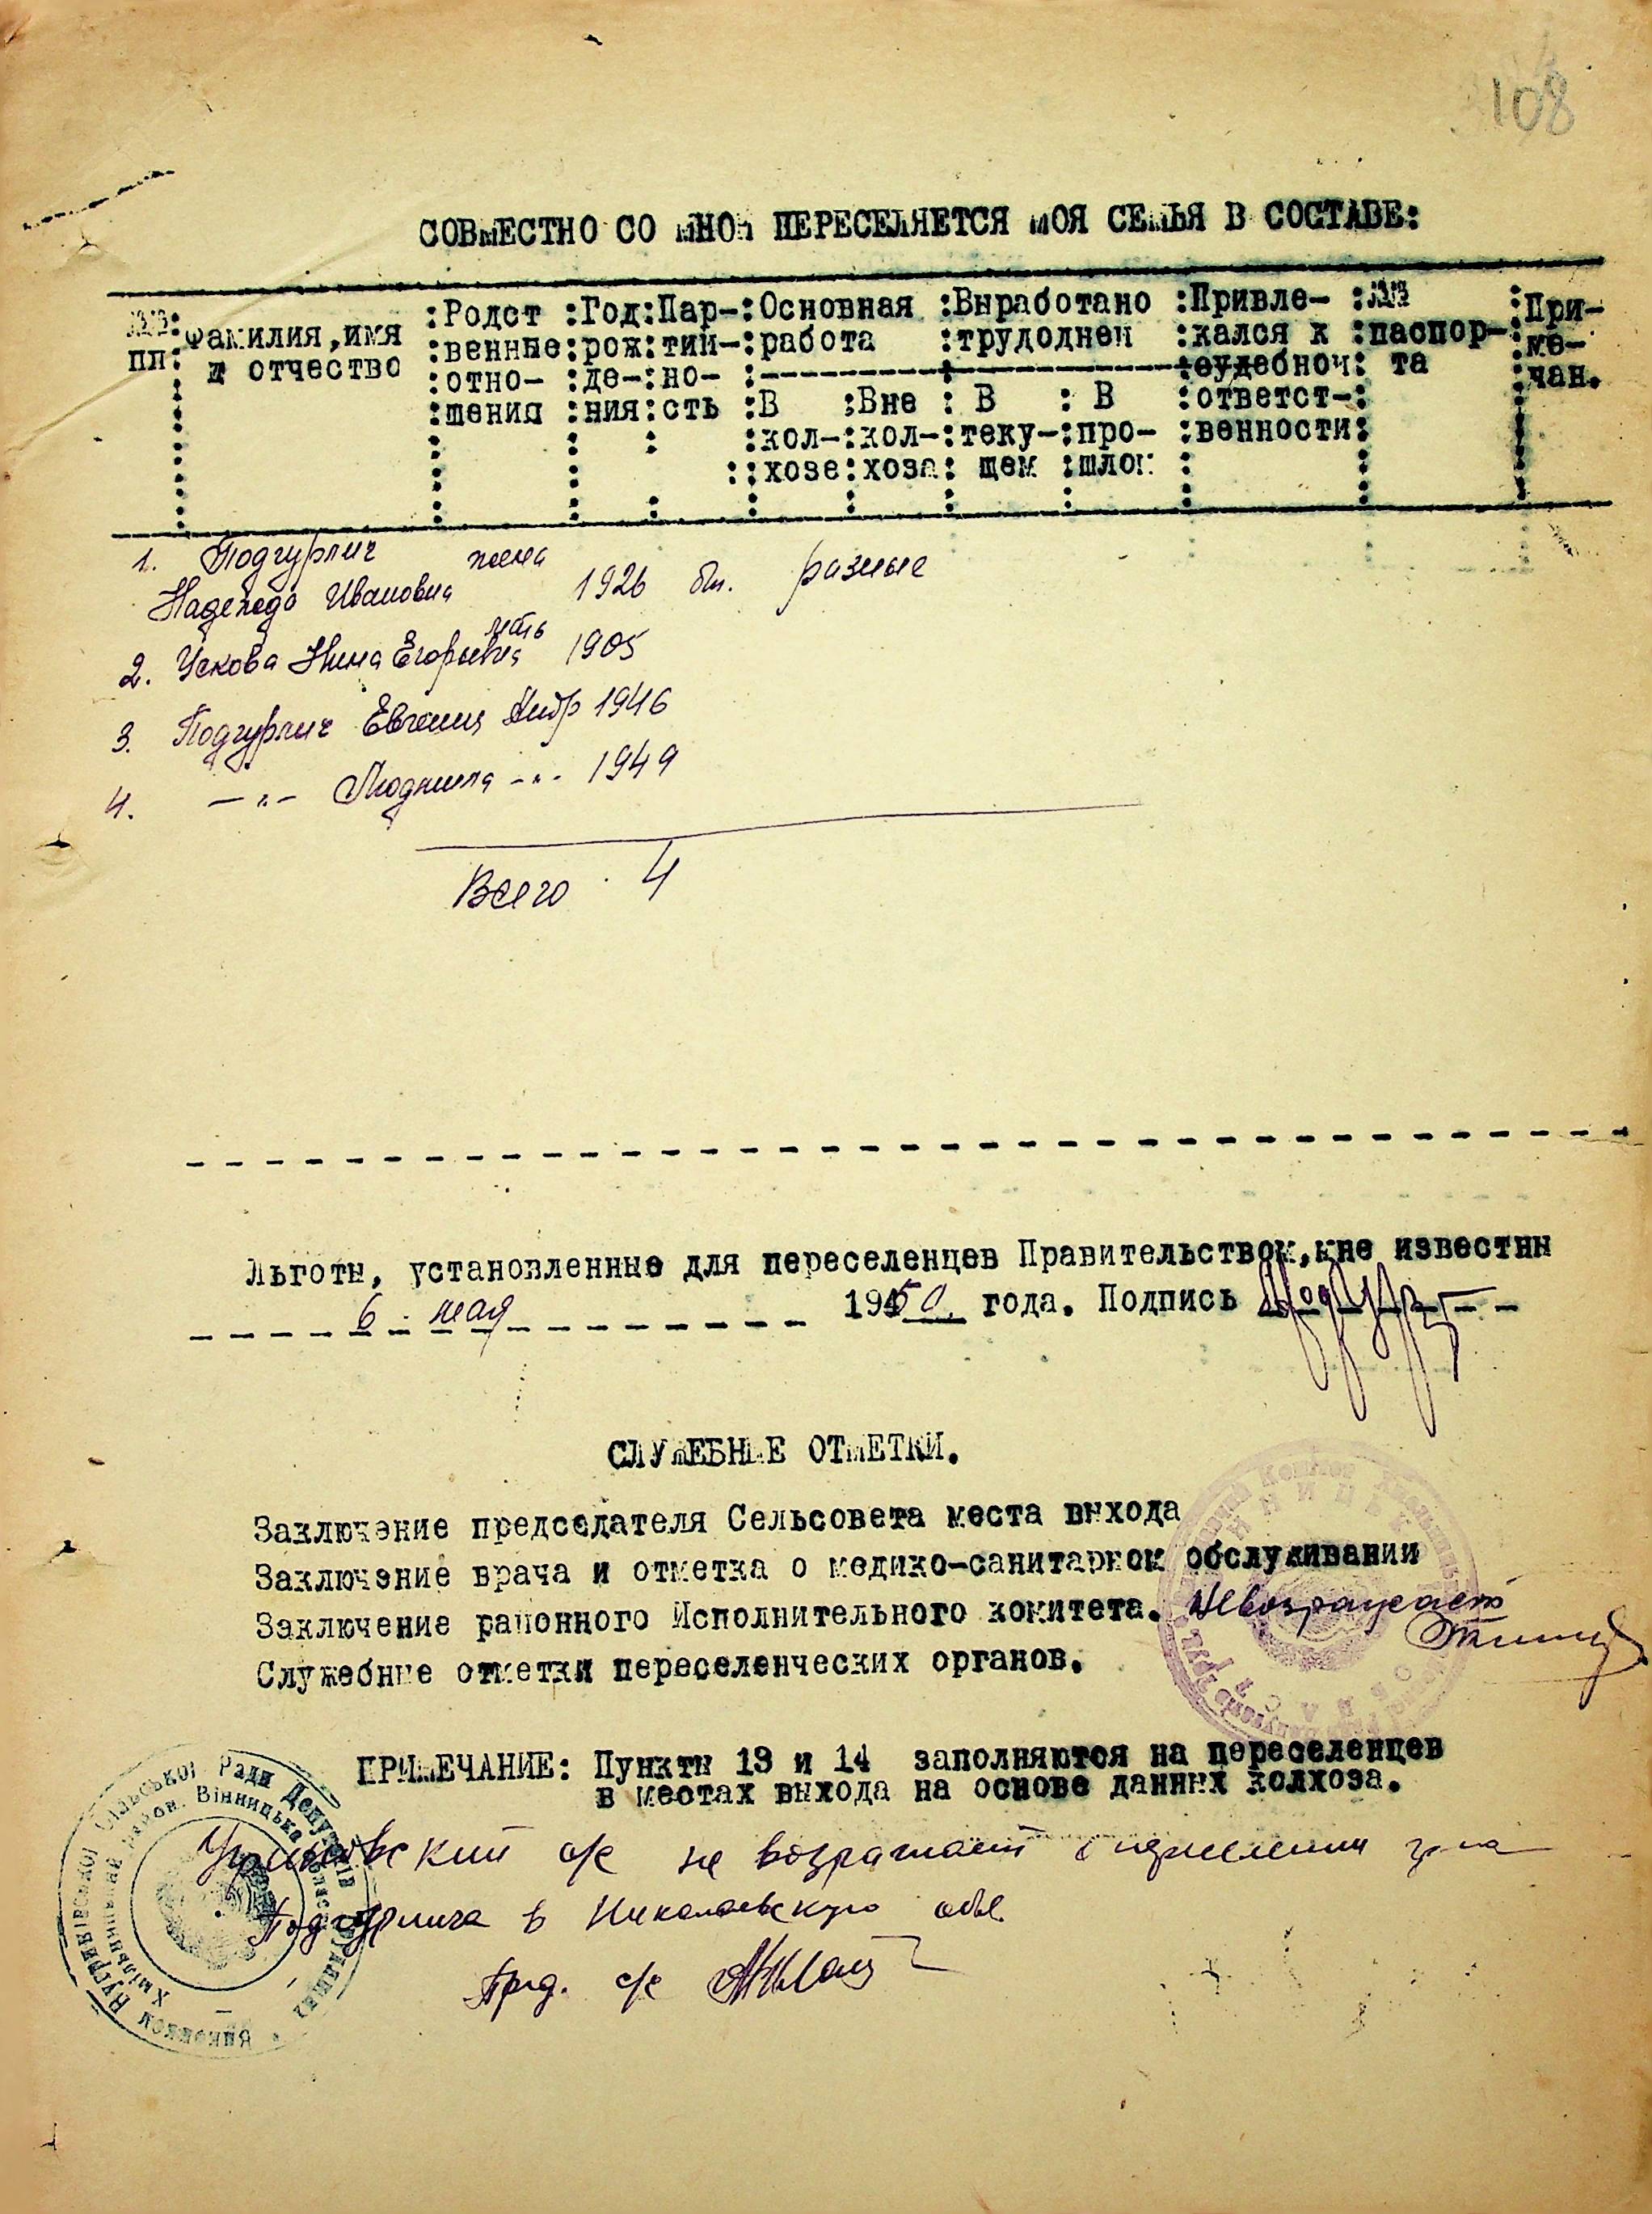 108
СОВМЕСТНО СО МНОЙ ПЕРЕСЕЛЯЕТСЯ МОЯ СЕМЬЯ В СОСТАВЕ:
№№ пп : Фамилия, имя и отчество : Родст венные отно- шения : Год рож де- ния : Пар- тий- но- сть : Основная работа : Выработано трудодней : Привле- кался к судебной ответст- венности : №№ паспор- та : При- ме- чан.
В кол- хозе : Вне кол- хоза : В теку- щем : В про- шлом
1. Подгурлич
Надежда Ивановна жена 1926 бп. разные
2. Ускова Нина Егоровна мать 1905
3. Подгурлич Евгения Андр 1946
4. -"- Людмила -"- 1949
Всего 4
Льготы, установленные для переселенцев Правительством, мне известны
6 мая 1950 года. Подпись
СЛУЖЕБНЫЕ ОТМЕТКИ.
Заключение председателя Сельсовета места выхода
Заключение врача и отметка о медико-санитарном обслуживании
Заключение районного Исполнительного комитета. Не возражаем
Служебные отметки переселенческих органов.
ПРИМЕЧАНИЕ: Пункты 13 и 14 заполняются на переселенцев
в местах выхода на основе данных колхоза.
с/с не возражает
Подгурлича в Николаевскую обл.
Пред. с/с
Сільської Ради Депутатів Трудящих
Хмільницький район, Вінницька област